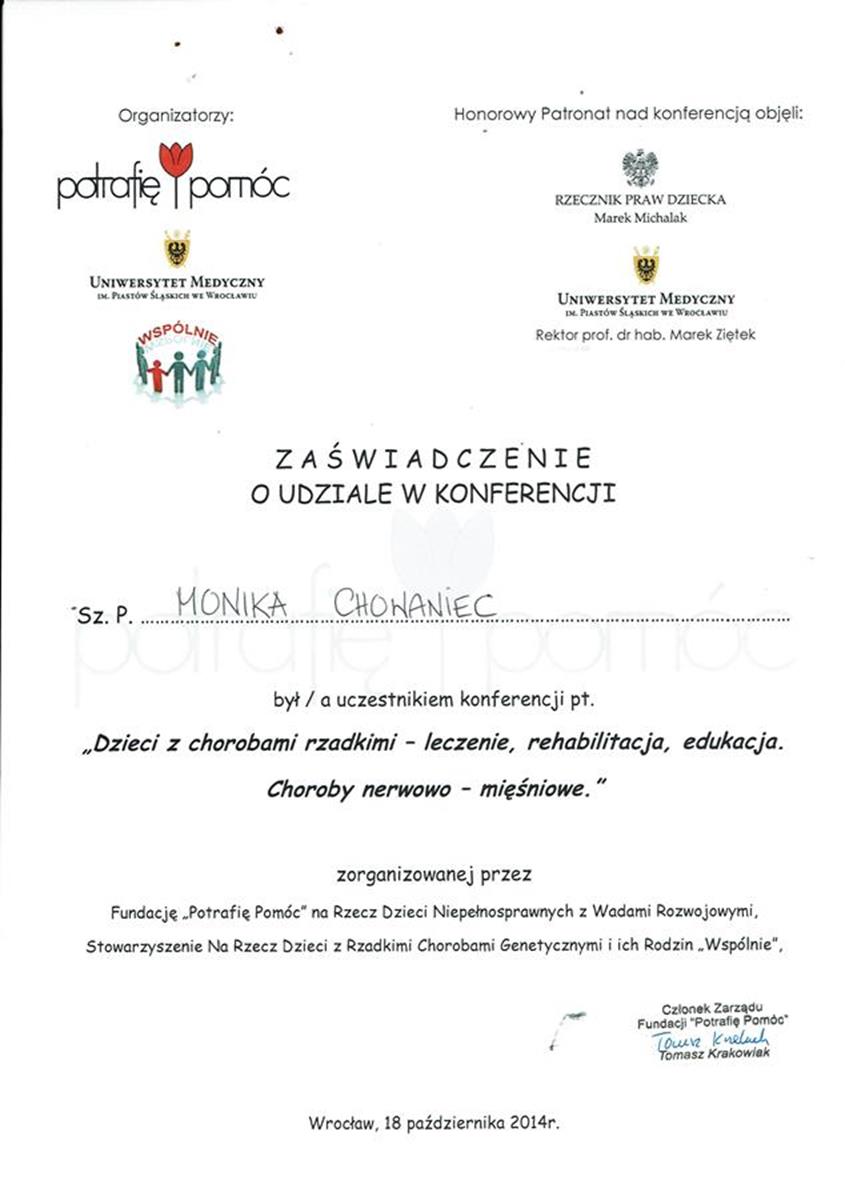 Organizatorzy:
potrafię pomóc
UNIWERSYTET MEDYCZNY
IM. PIASTÓW ŚLĄSKICH WE WROCŁAWIU
WSPÓLNIE
Honorowy Patronat nad konferencją objęli:
RZECZNIK PRAW DZIECKA
Marek Michalak
UNIWERSYTET MEDYCZNY
IM. PIASTÓW ŚLĄSKICH WE WROCŁAWIU
Rektor prof. dr hab. Marek Ziętek
ZAŚWIADCZENIE
O UDZIALE W KONFERENCJI
Sz. P. MONIKA CHOWANIEC
potrafię pomóc
był / a uczestnikiem konferencji pt.
„Dzieci z chorobami rzadkimi – leczenie, rehabilitacja, edukacja.
Choroby nerwowo – mięśniowe.”
zorganizowanej przez
Fundację „Potrafię Pomóc” na Rzecz Dzieci Niepełnosprawnych z Wadami Rozwojowymi,
Stowarzyszenie Na Rzecz Dzieci z Rzadkimi Chorobami Genetycznymi i ich Rodzin „Wspólnie”,
Członek Zarządu
Fundacji "Potrafię Pomóc"
Tomasz Krakowiak
Wrocław, 18 października 2014r.